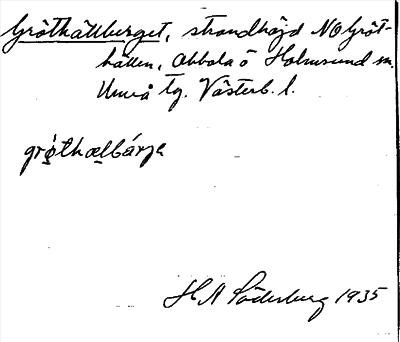 Gröthällberget, strandhöjd NO Gröt-
hällen, Obbola ö Holmsund sn.
Umeå tg. Västerb. l.
grö̀thælbárje
H A Söderberg 1935